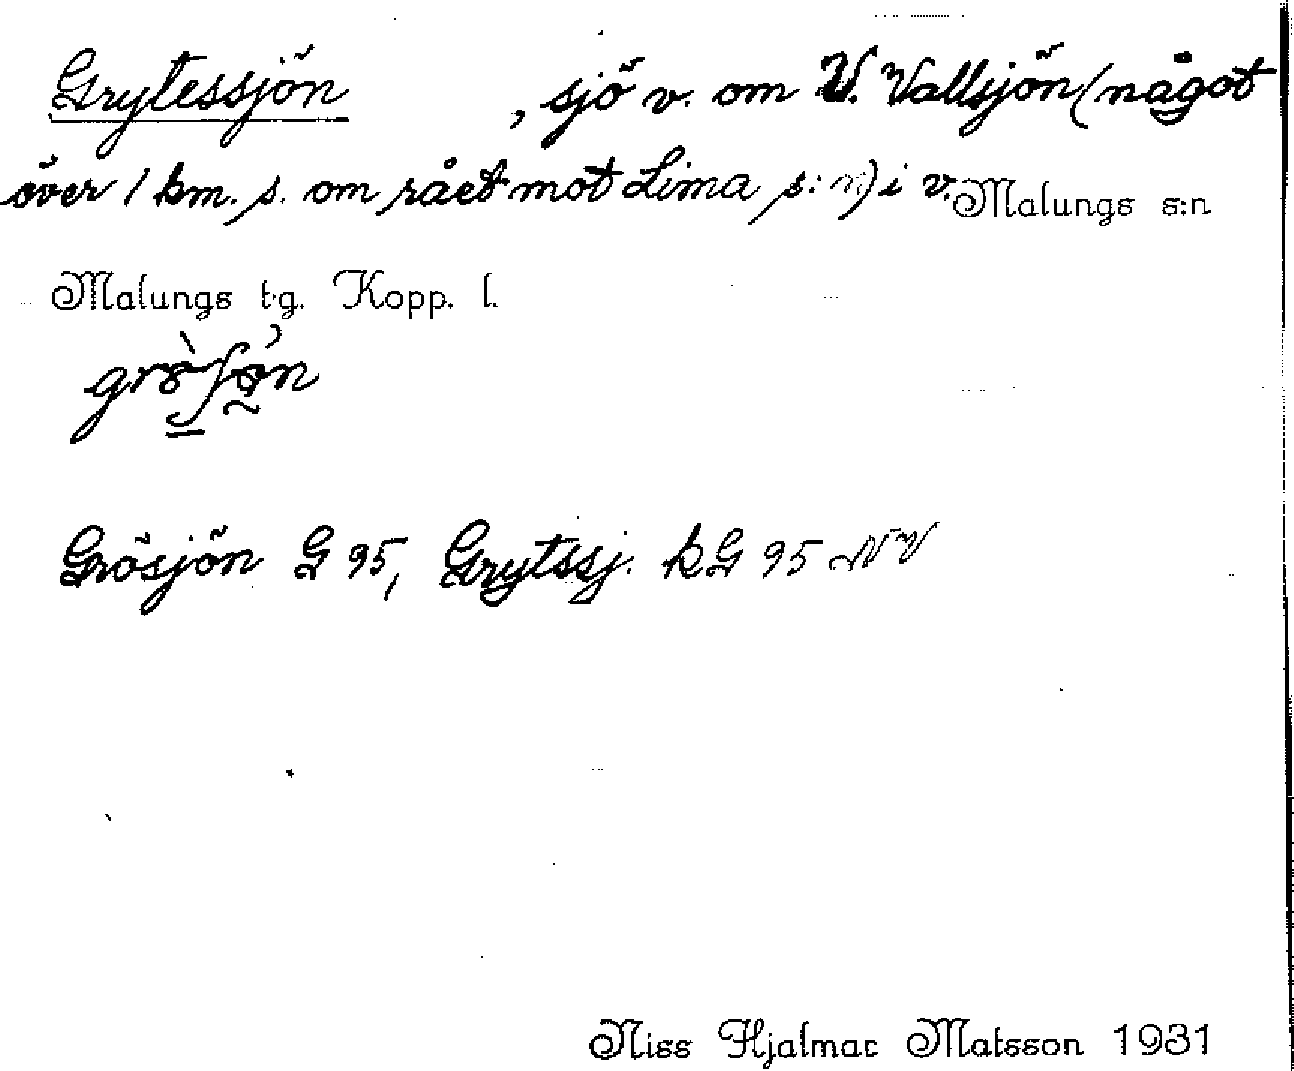 Grytessjön , sjö v. om V. Vallsjön (något
över 1 km. s. om rået mot Lima s:n) i v. Malungs s:n
Malungs tg. Kopp. l.
Grösjön G 95, Grytssj. kG 95 NV
Niss Hjalmar Matsson 1931